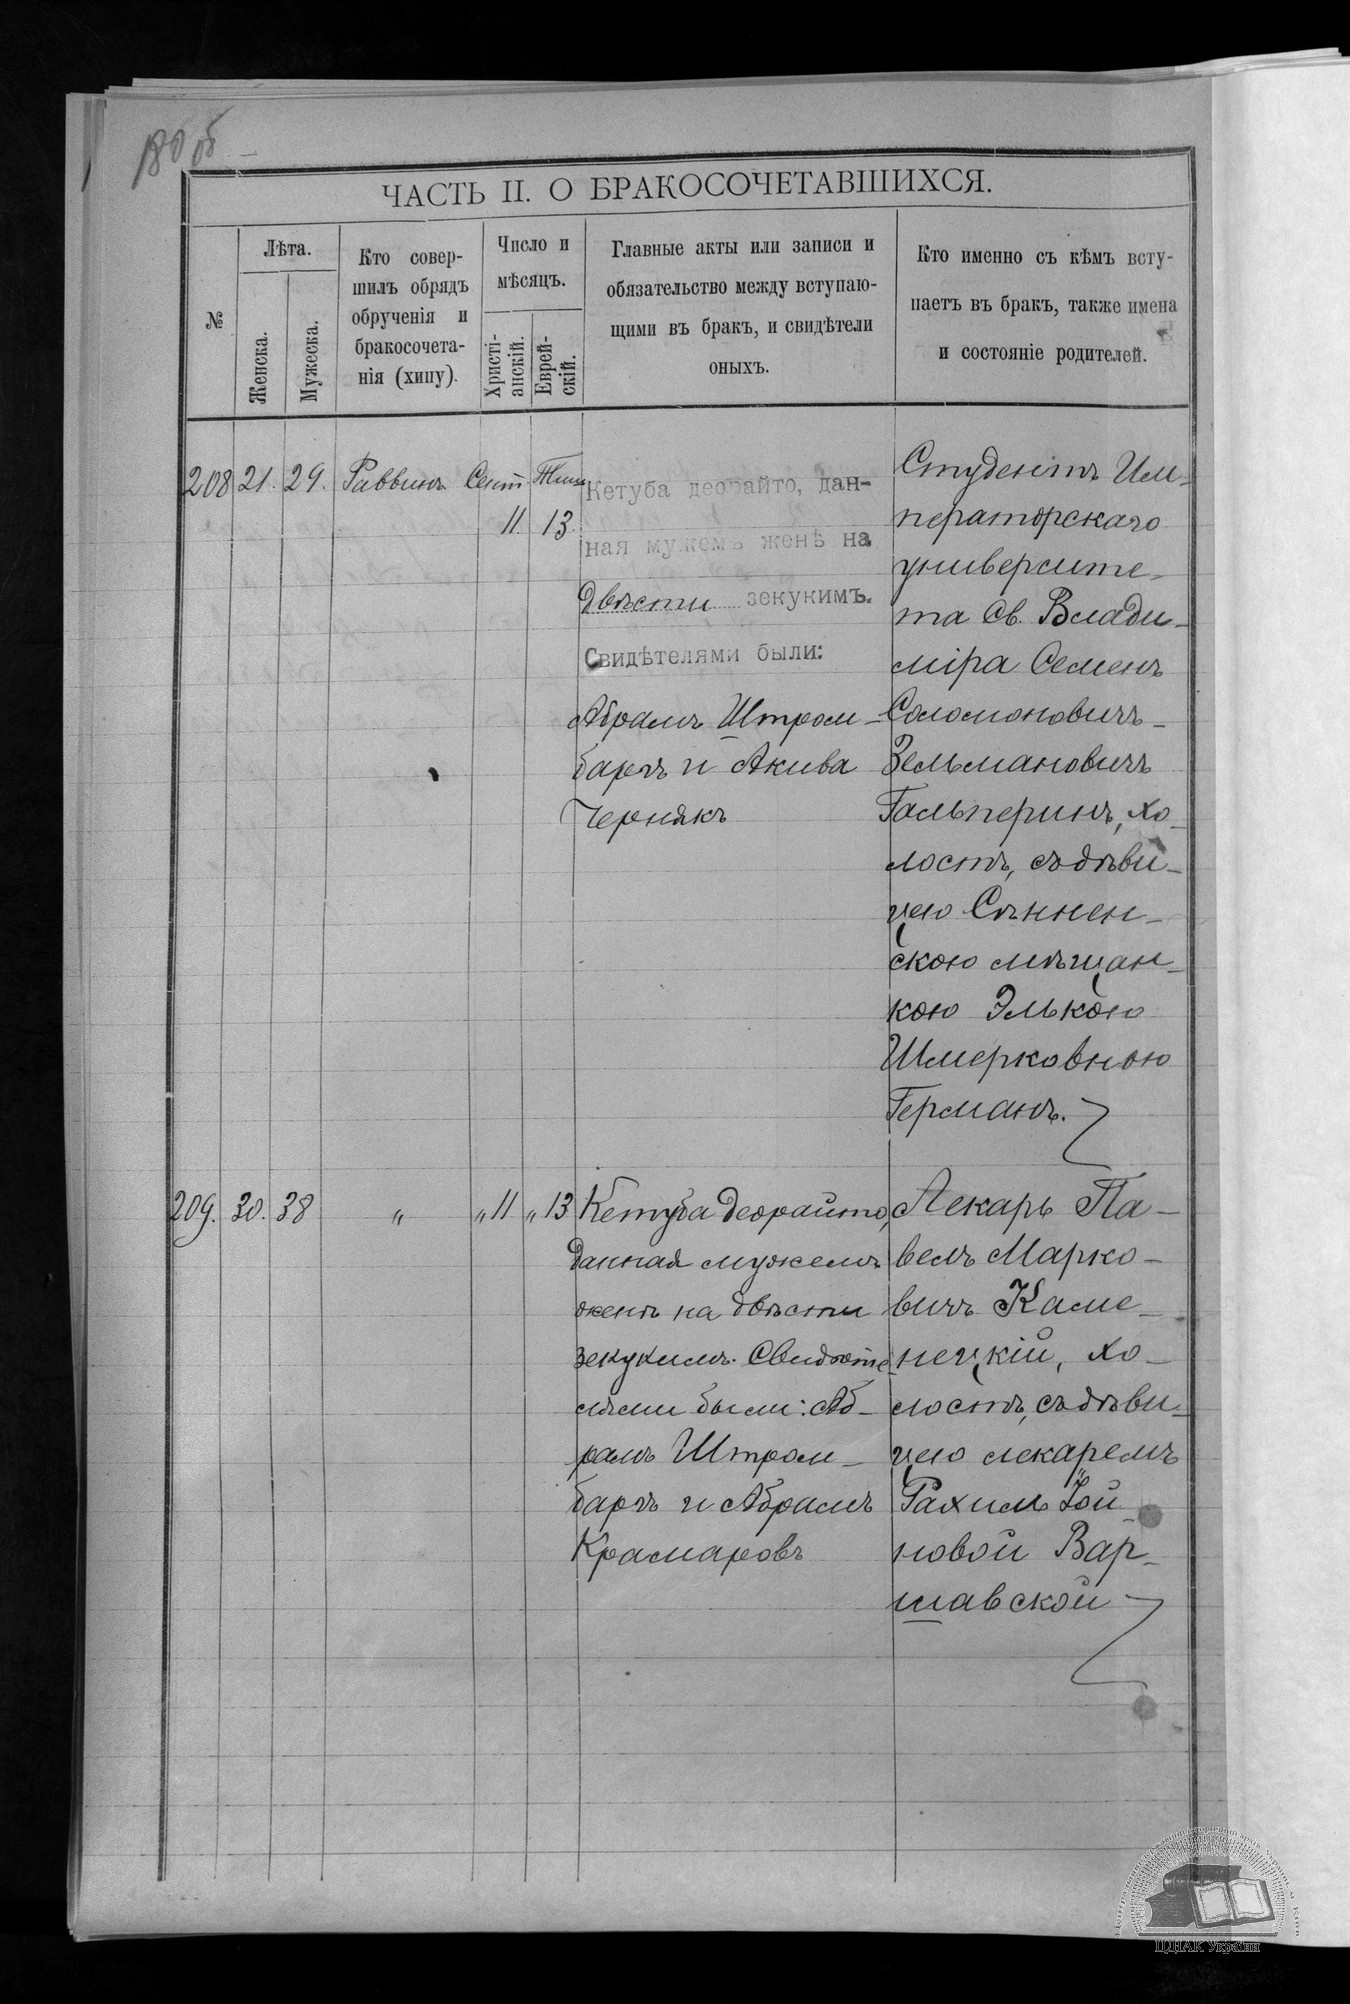 180 об
ЧАСТЬ II. О БРАКОСОЧЕТАВШИХСЯ.
№
Лѣта.
Женска.
Мужеска.
Кто совер-
шилъ обрядъ
обрученія и
бракосочета-
нія (хипу).
Число и
мѣсяцъ.
Христі-
анскій.
Еврей-
скій.
Главные акты или записи и
обязательство между вступаю-
щими въ бракъ, и свидѣтели
оныхъ.
Кто именно съ кѣмъ всту-
паетъ въ бракъ, также имена
и состояніе родителей.
208 21. 29. Раввинъ Сент. Тиш.
11. 13.
Кетуба деорайто, дан-
ная мужемъ женѣ на
двѣсти зекукимъ.
Свидѣтелями были:
Абрамъ Штром-
баргъ и Акива
Чернякъ
Студентъ Им-
ператорскаго
университе-
та Св. Влади-
міра Семенъ
Соломоновичъ-
Зельмановичъ
Гальперинъ, хо-
лостъ, съ дѣви-
цею Сѣннен-
скою мѣщан-
кою Элькою
Шмерковною
Германъ.
209. 30. 38 „ „ 11 „ 13
Кетуба деорайто,
данная мужемъ
женѣ на двѣсти
зекукимъ. Свидѣте-
лями были: Аб-
рамъ Штром-
баргъ и Абрамъ
Крамаровъ
Лекарь Па-
велъ Марко-
вичъ Каме-
нецкій, хо-
лостъ, съ дѣви-
цею лекаремъ
Рахиль Іой-
новой Вар-
шавской
ЦДІАК України